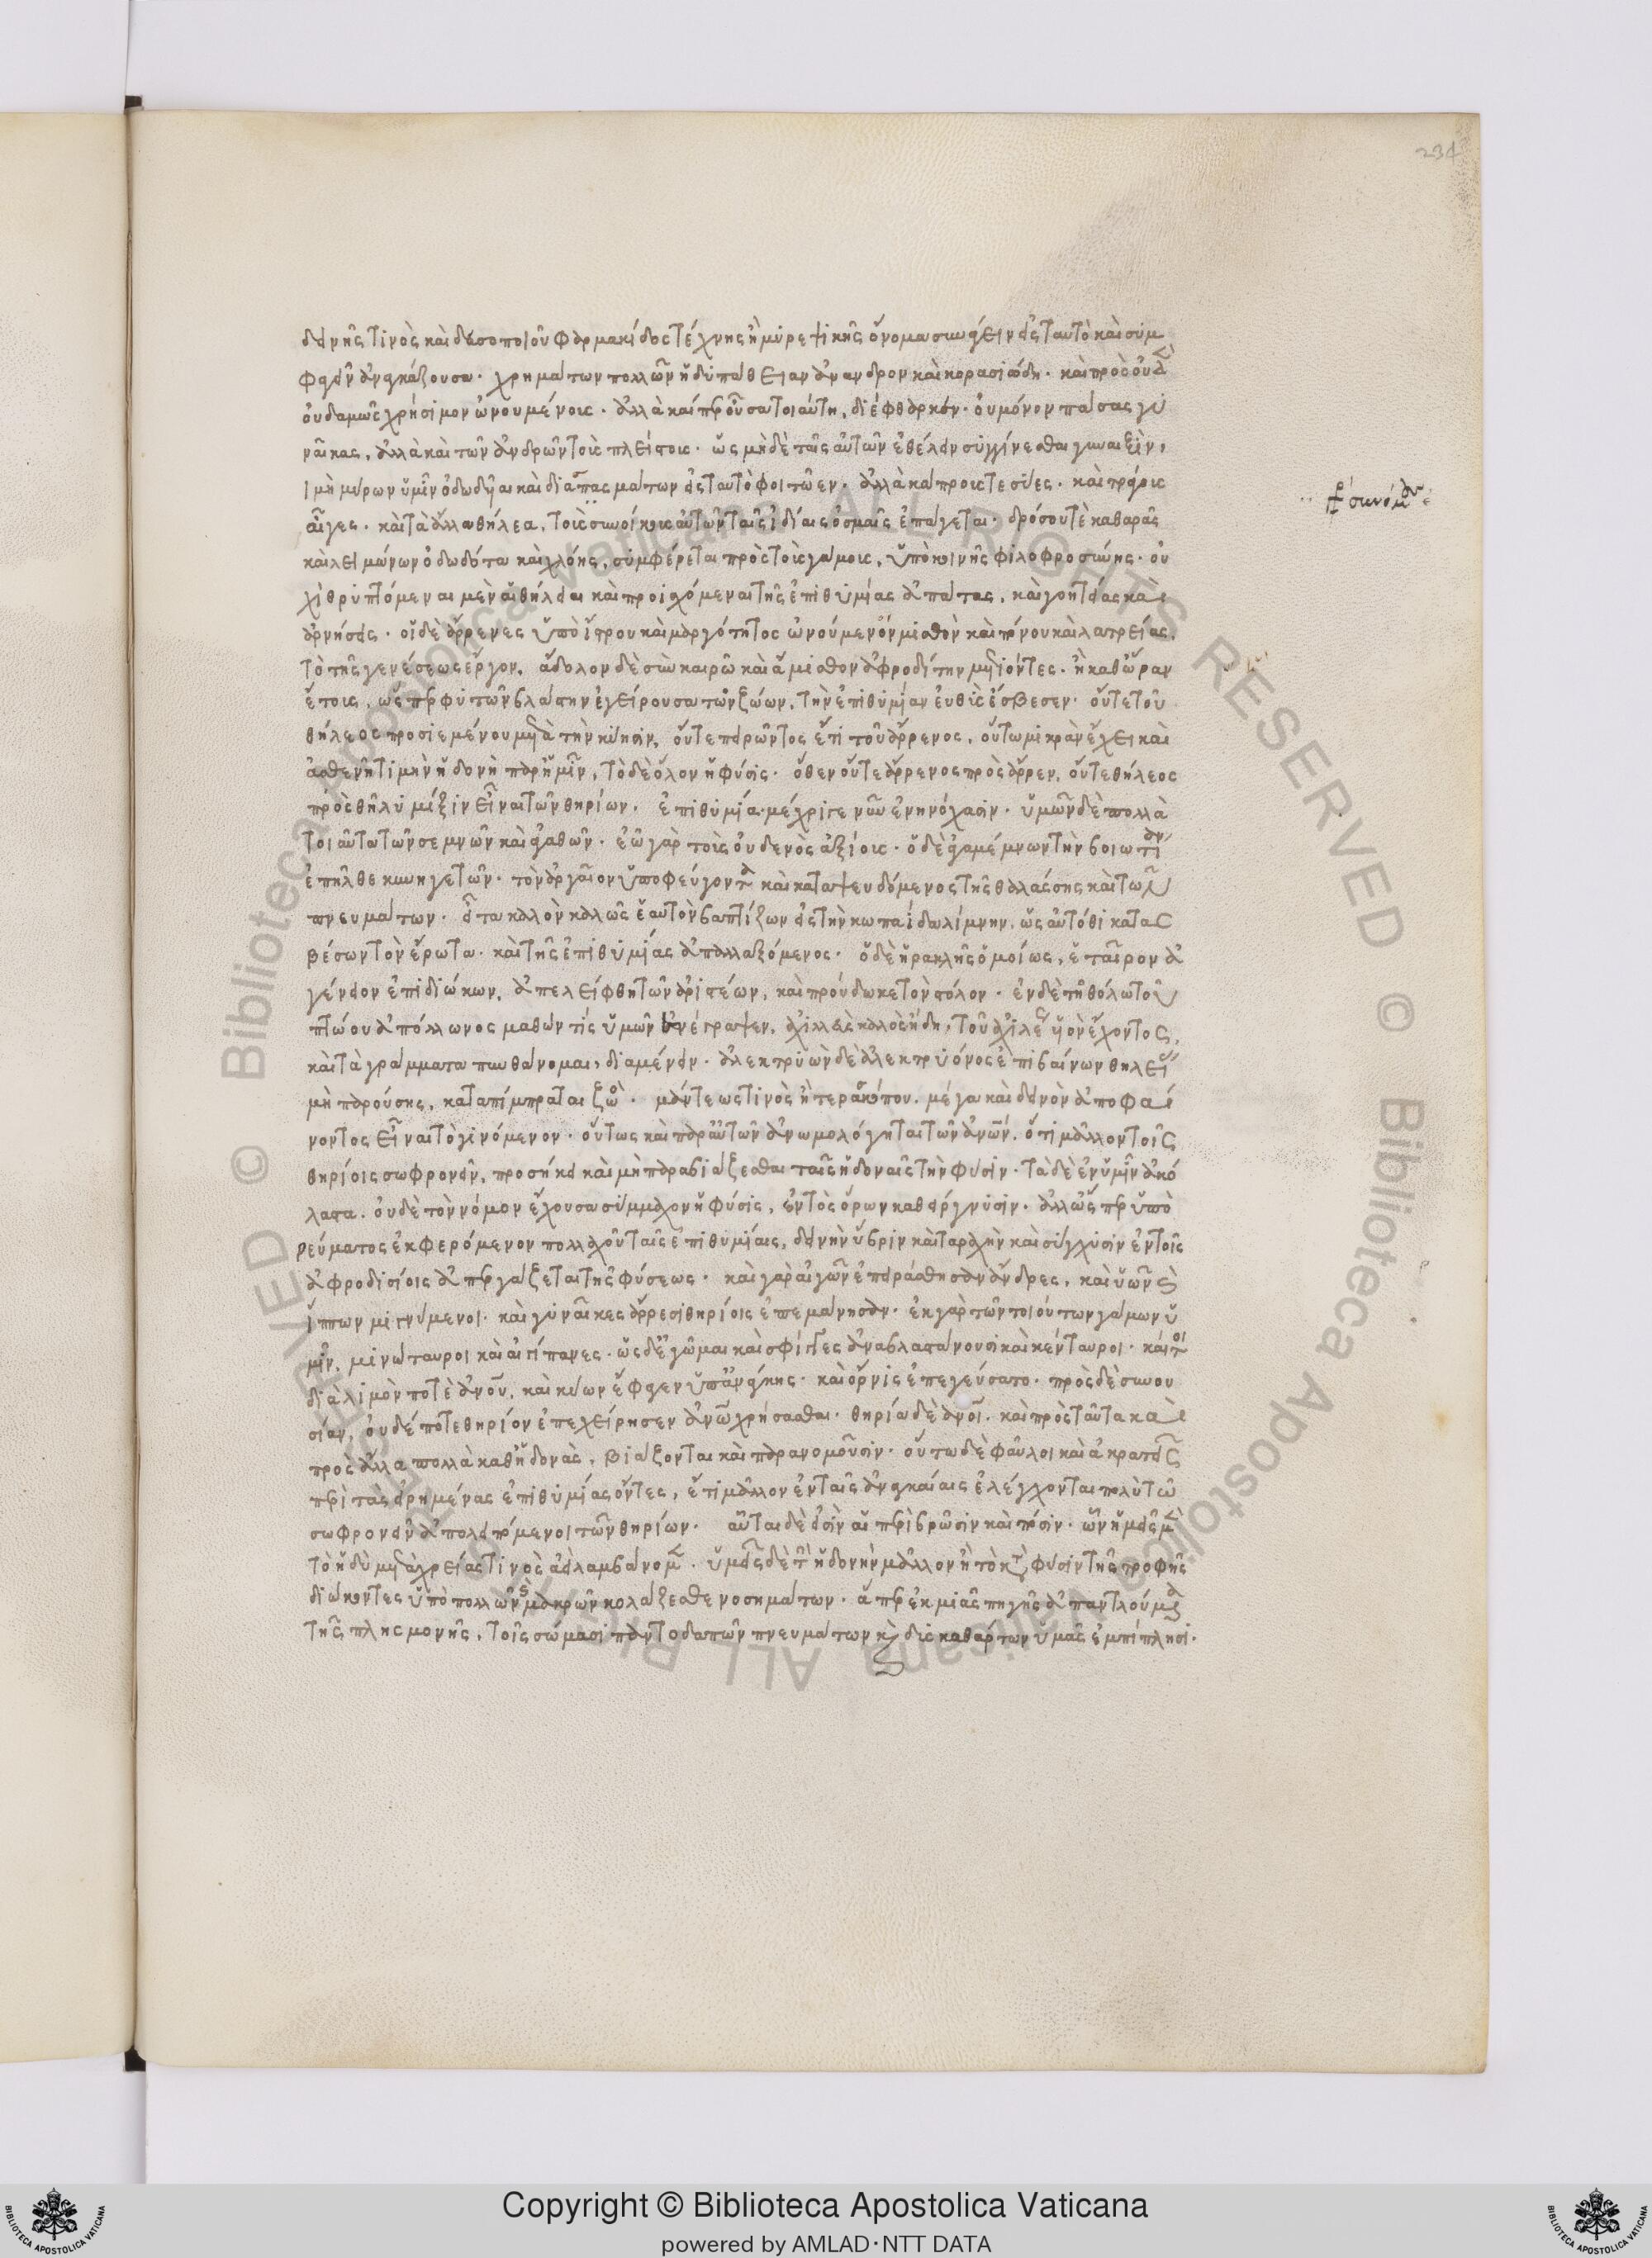 234
δεινῆς τινὸς καὶ δευσοποιοῦ φαρμακίδος τέχνης ἢ μυρεψικῆς ὄνομα συνάγειν εἰς ταυτὸ καὶ συμ
φαγεῖν ἀναγκάζουσα. χρημάτων πολλῶν ἡδυπάθειαν ἄνανδρον καὶ κορασιώδη. καὶ πρὸς οὐδὲν
οὐδαμῶς χρήσιμον ὠνουμένοις. ἀλλὰ καίπερ οὖσα τοιαύτη, διέφθαρκεν. οὐ μόνον πάσας γυ
ναῖκας, ἀλλὰ καὶ τῶν ἀνδρῶν τοὺς πλείστους. ὡς μηδὲ ταῖς αὐτῶν ἐθέλειν συγγίνεσθαι γυναιξὶν,
ι μὴ μύρων ὑμῖν ὀδωδυῖαι καὶ διαπασμάτων εἰς ταυτὸ φοιτῶεν. ἀλλὰ κάπρους τε σύες. καὶ τράγους
αἶγες. καὶ τὰ ἄλλα θήλεα, τοὺς συννόμους αὐτῶν ταῖς ἰδίαις ὀσμαῖς ἐπάγεται. δρόσου τὲ καθαρᾶς
καὶ λειμώνων ὀδωδότα καὶ χλόης, συμφέρεται πρὸς τοὺς γάμους, ὑπὸ κοινῆς φιλοφροσύνης. οὐ
χὶ θρυπτόμεναι μὲν αἱ θήλειαι καὶ προϊσχόμεναι τῆς ἐπιθυμίας ἀπάτας, καὶ γοητείας καὶ
ἀρνήσεις. οἱ δὲ ἄρρενες ὑπὸ οἴστρου καὶ μαργότητος ὠνούμενοι μισθὸν καὶ πόνου καὶ λατρείας,
τὸ τῆς γενέσεως ἔργον, ἄδολον δὲ σὺν καιρῷ καὶ ἄμισθον ἀφροδίτην μετιόντες. ἣ καθ' ὥραν
ἔτους, ὥσπερ φυτῶν βλάστην ἐγείρουσα τῶν ζώων, τὴν ἐπιθυμίαν εὐθὺς ἔσβεσεν. οὔτε τοῦ
θήλεος προσιεμένου μετὰ τὴν κύησιν, οὔτε πειρῶντος ἔτι τοῦ ἄρρενος. οὕτω μικρὰν ἔχει καὶ
ἀσθενῆ τιμὴν ἡδονὴ παρ' ἡμῖν, τὸ δὲ ὅλον ἡ φύσις. ὅθεν οὔτε ἄρρενος πρὸς ἄρρεν, οὔτε θήλεος
πρὸς θῆλυ μίξιν εἶναι τῶν θηρίων. ἐπιθυμία μέχρι γε νῦν ἐνηνόχασιν. ὑμῶν δὲ πολλὰ
τοιαῦτα τῶν σεμνῶν καὶ ἀγαθῶν. ἐῶ γὰρ τοὺς οὐδενὸς ἀξίους. ὁ δὲ ἀγαμέμνων τὴν βοιωτίαν
ἐπῆλθε κυνηγετῶν. τὸν ἀργαῖον ὑποφεύγοντα καὶ καταψευδόμενος τῆς θαλάσσης καὶ τῶν
πνευμάτων. εἶτα καλὸν καλῶς ἑαυτὸν βαπτίζων εἰς τὴν κωπαΐδα λίμνην, ὡς αὐτόθι κατας
βέσων τὸν ἔρωτα. καὶ τῆς ἐπιθυμίας ἀπαλλαξόμενος. ὁ δὲ ἡρακλῆς ὁμοίως, ἑταῖρον ἀ
γένειον ἐπιδιώκων, ἀπελείφθη τῶν ἀριστέων, καὶ προύδωκε τὸν στόλον. ἐν δὲ τῇ θόλῳ τοῦ
πτώου ἀπόλλωνος μαθών τις ὑμῶν ἐνέγραψεν, ἀχιλλεὺς καλὸς ἤδη, τοῦ ἀχιλέως υἱὸν ἔχοντος,
καὶ τὰ γράμματα πυνθάνομαι, διαμένειν. ἀλεκτρυὼν δὲ ἀλεκτρυόνος ἐπιβαίνων θηλείας
μὴ παρούσης, καταπίμπραται ζωός. μάντεώς τινὸς ἢ τερατοσκόπου. μέγα καὶ δεινὸν ἀποφαί
νοντος εἶναι τὸ γινόμενον. οὕτως καὶ παρ' αὐτῶν ἀνωμολόγηται τῶν ἀνῶν, ὅτι μᾶλλον τοῖς
θηρίοις σωφρονεῖν, προσήκει καὶ μὴ παραβιάζεσθαι ταῖς ἡδοναῖς τὴν φύσιν. τὰ δὲ ἐν ὑμῖν ἀκό
λαστα. οὐδὲ τὸν νόμον ἔχουσα σύμμαχον ἡ φύσις, ἐντὸς ὅρων καθείργνυσιν. ἀλλ' ὥσπερ ὑπὸ
ρεύματος ἐκφερόμενον πολλαχοῦ ταῖς ἐπιθυμίαις, δεινὴν ὕβριν καὶ ταραχὴν καὶ σύγχυσιν ἐν τοῖς
ἀφροδισίοις ἀπεργάζεται τῆς φύσεως. καὶ γὰρ αἰγῶν ἐπειράσθησαν ἄνδρες, καὶ ὑῶν καὶ
ἵππων μιγνύμενοι. καὶ γυναῖκες ἄρρεσι θηρίοις ἐπεμάνησαν. ἐκ γὰρ τῶν τοιούτων γάμων ὑ
μῖν, μινώταυροι καὶ αἰγίπανες. ὡς δὲ ἐγῷμαι καὶ σφίγγες ἀναβλαστάνουσι καὶ κένταυροι. καίτοι
διὰ λιμὸν ποτὲ ἀνοῦ, καὶ κύων ἔφαγεν ὑπ' ἀνάγκης. καὶ ὄρνις ἐπεγεύσατο. πρὸς δὲ συνου
σίαν, οὐδέποτε θηρίον ἐπεχείρησεν ἀνῷ χρήσασθαι. θηρία δὲ ἀνοι. καὶ πρὸς ταῦτα καὶ
πρὸς ἄλλα πολλὰ καθ' ἡδονὰς, βιάζονται καὶ παρανομοῦσιν. οὕτω δὲ φαῦλοι καὶ ἀκρατεῖς
περὶ τὰς εἰρημένας ἐπιθυμίας ὄντες, ἔτι μᾶλλον ἐν ταῖς ἀναγκαίαις ἐλέγχονται πολὺ τῷ
σωφρονεῖν ἀπολειπόμενοι τῶν θηρίων. αὗται δὲ εἰσὶν αἱ περὶ βρῶσιν καὶ πόσιν. ὧν ἡμεῖς μὲν
τὸ ἡδὺ μετὰ χρείας τινὸς ἀεὶ λαμβάνομεν. ὑμεῖς δὲ τὴν ἡδονὴν μᾶλλον ἢ τὸ κατὰ φύσιν τῆς τροφῆς
διώκοντες ὑπὸ πολλῶν καὶ μακρῶν κολάζεσθε νοσημάτων. ἅπερ ἐκ μιᾶς πηγῆς ἀπαντλούμενα
τῆς πλησμονῆς, τοῖς σώμασι παντοδαπῶν πνευμάτων καὶ δυσκαθάρτων ὑμᾶς ἐμπίπλησι.